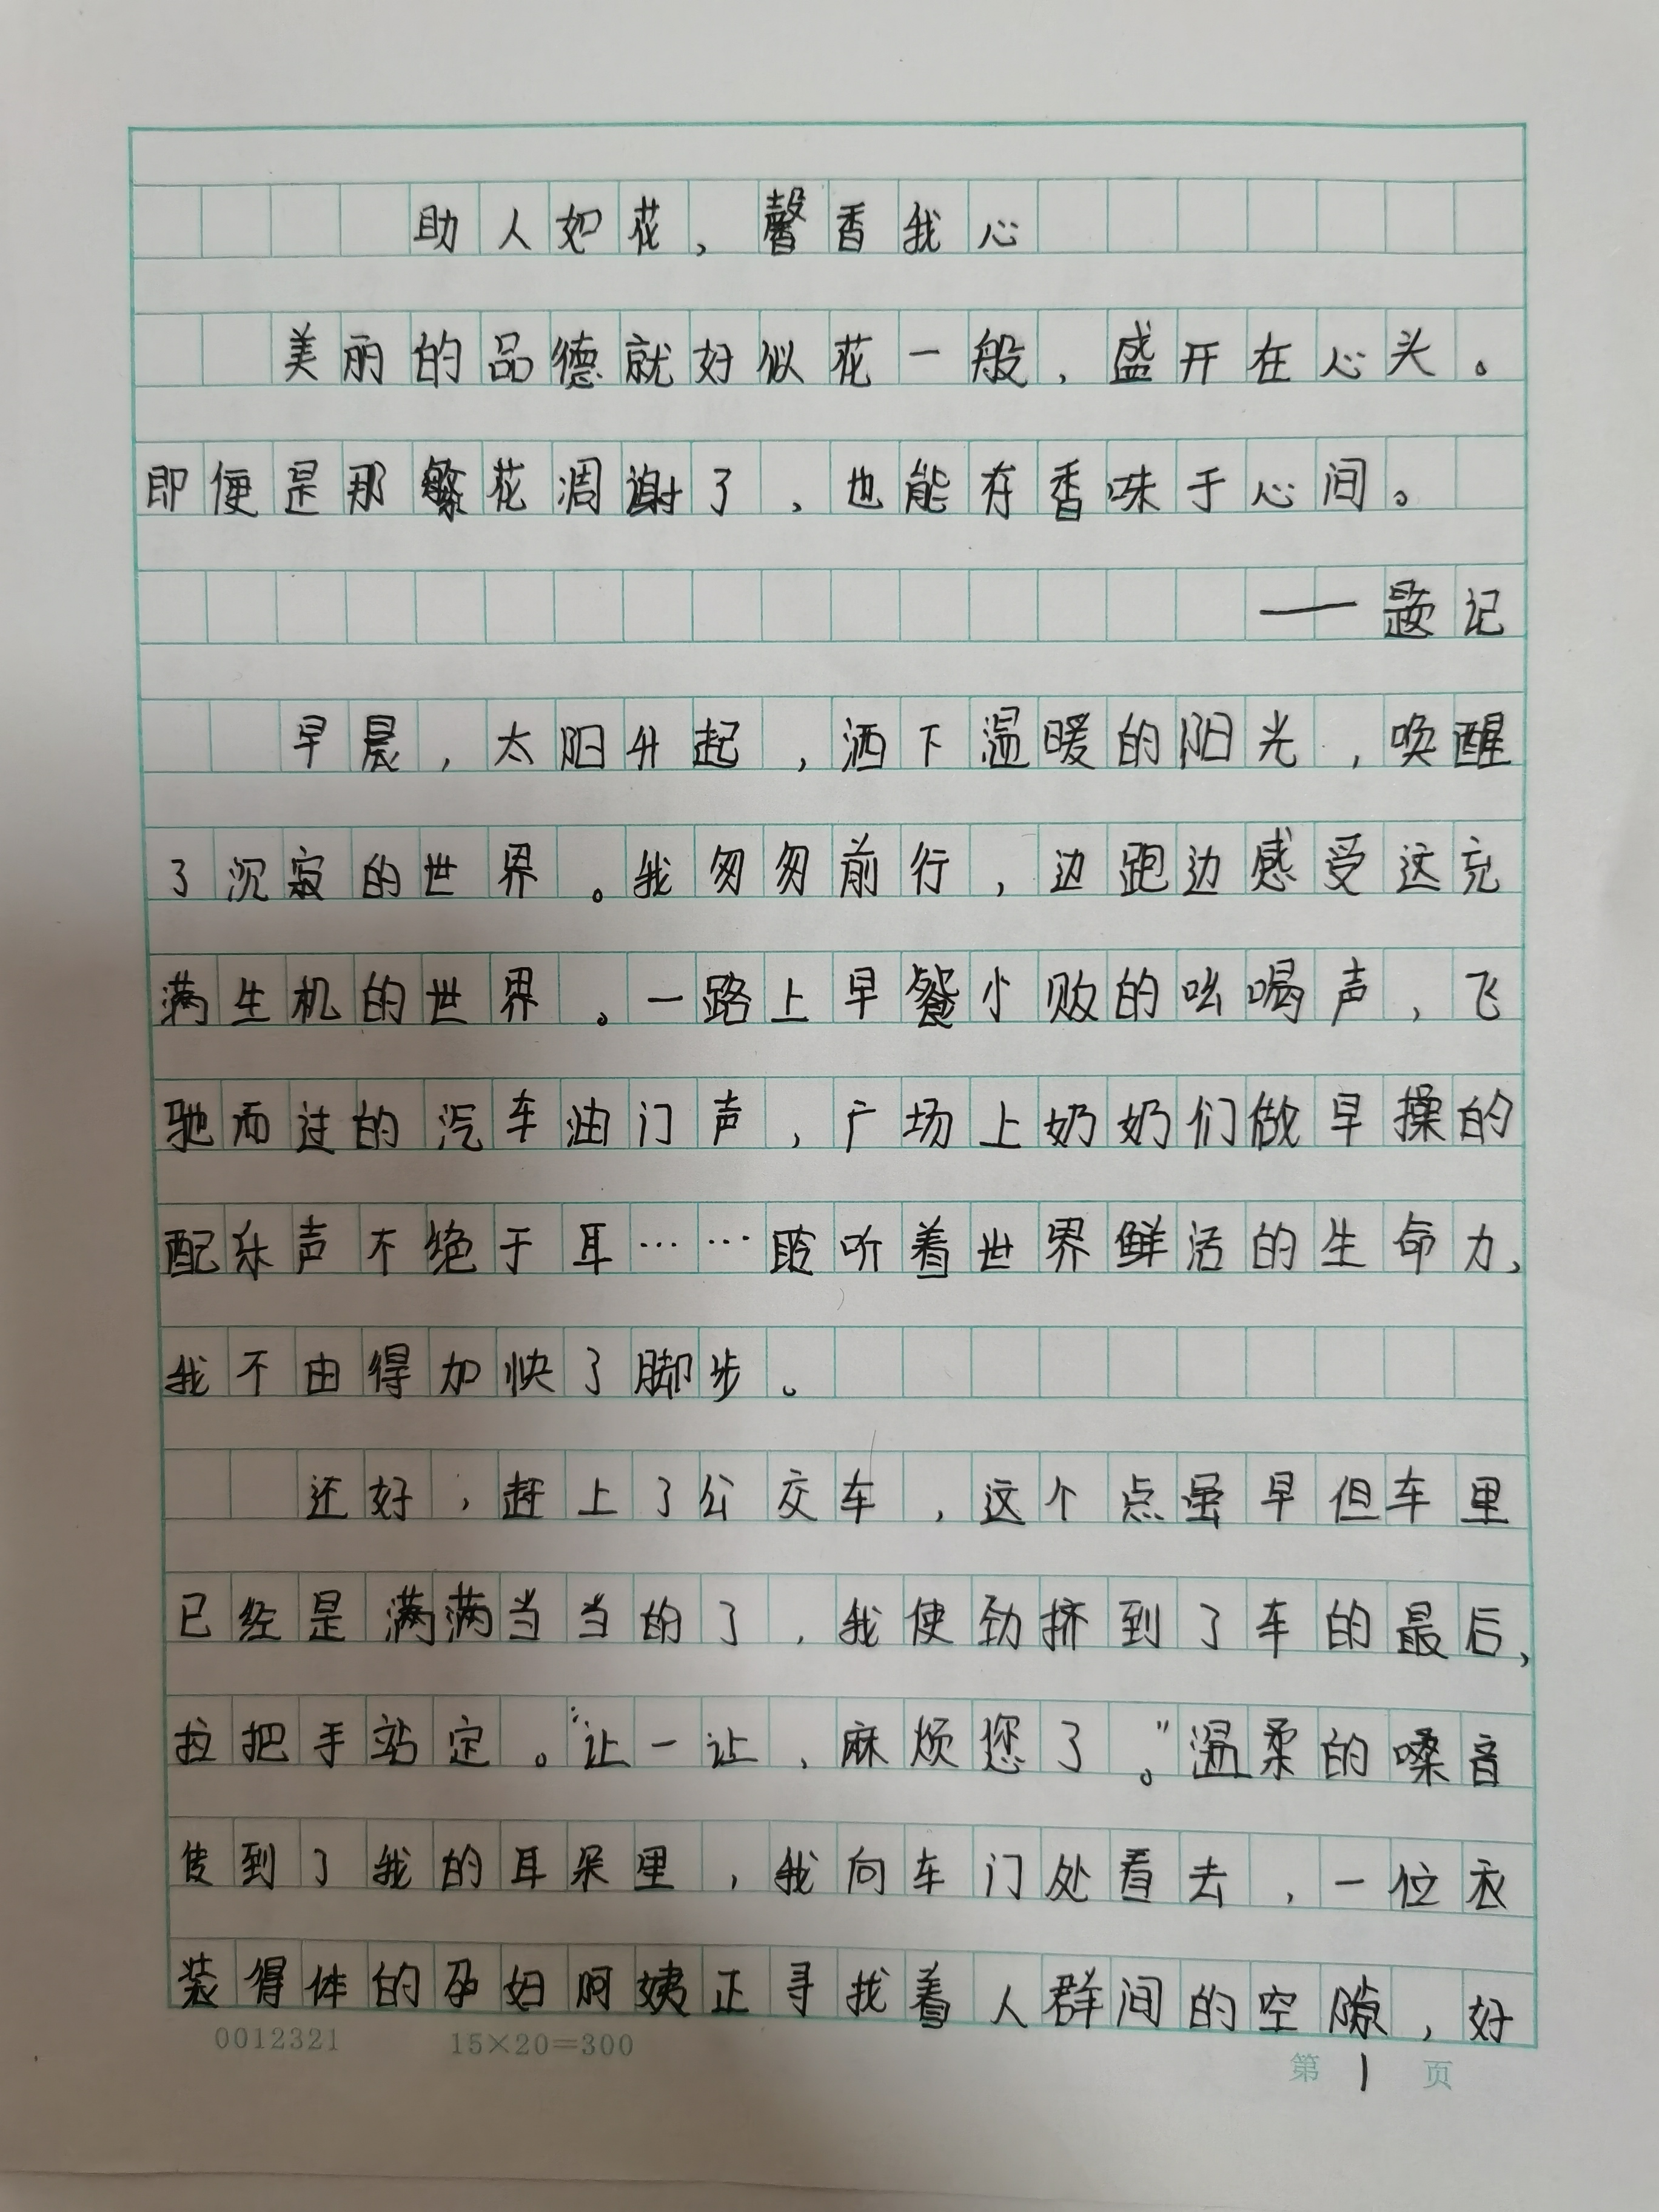 助人如花，馨香我心
美丽的品德就好似花一般，盛开在心头。
即便是那繁花凋谢了，也能存香味于心间。
——题记
早晨，太阳升起，洒下温暖的阳光，唤醒
了沉寂的世界。我匆匆前行，边跑边感受这充
满生机的世界。一路上早餐小败的吆喝声，飞
驰而过的汽车油门声，广场上奶奶们做早操的
配乐声不绝于耳……聆听着世界鲜活的生命力，
我不由得加快了脚步。
还好，赶上了公交车，这个点虽早但车里
已经是满满当当的了，我使劲挤到了车的最后，
拉把手站定。“让一让，麻烦您了。”温柔的嗓音
传到了我的耳朵里，我向车门处看去，一位衣
装得体的孕妇阿姨正寻找着人群间的空隙，好
0012321 15×20=300
第1页